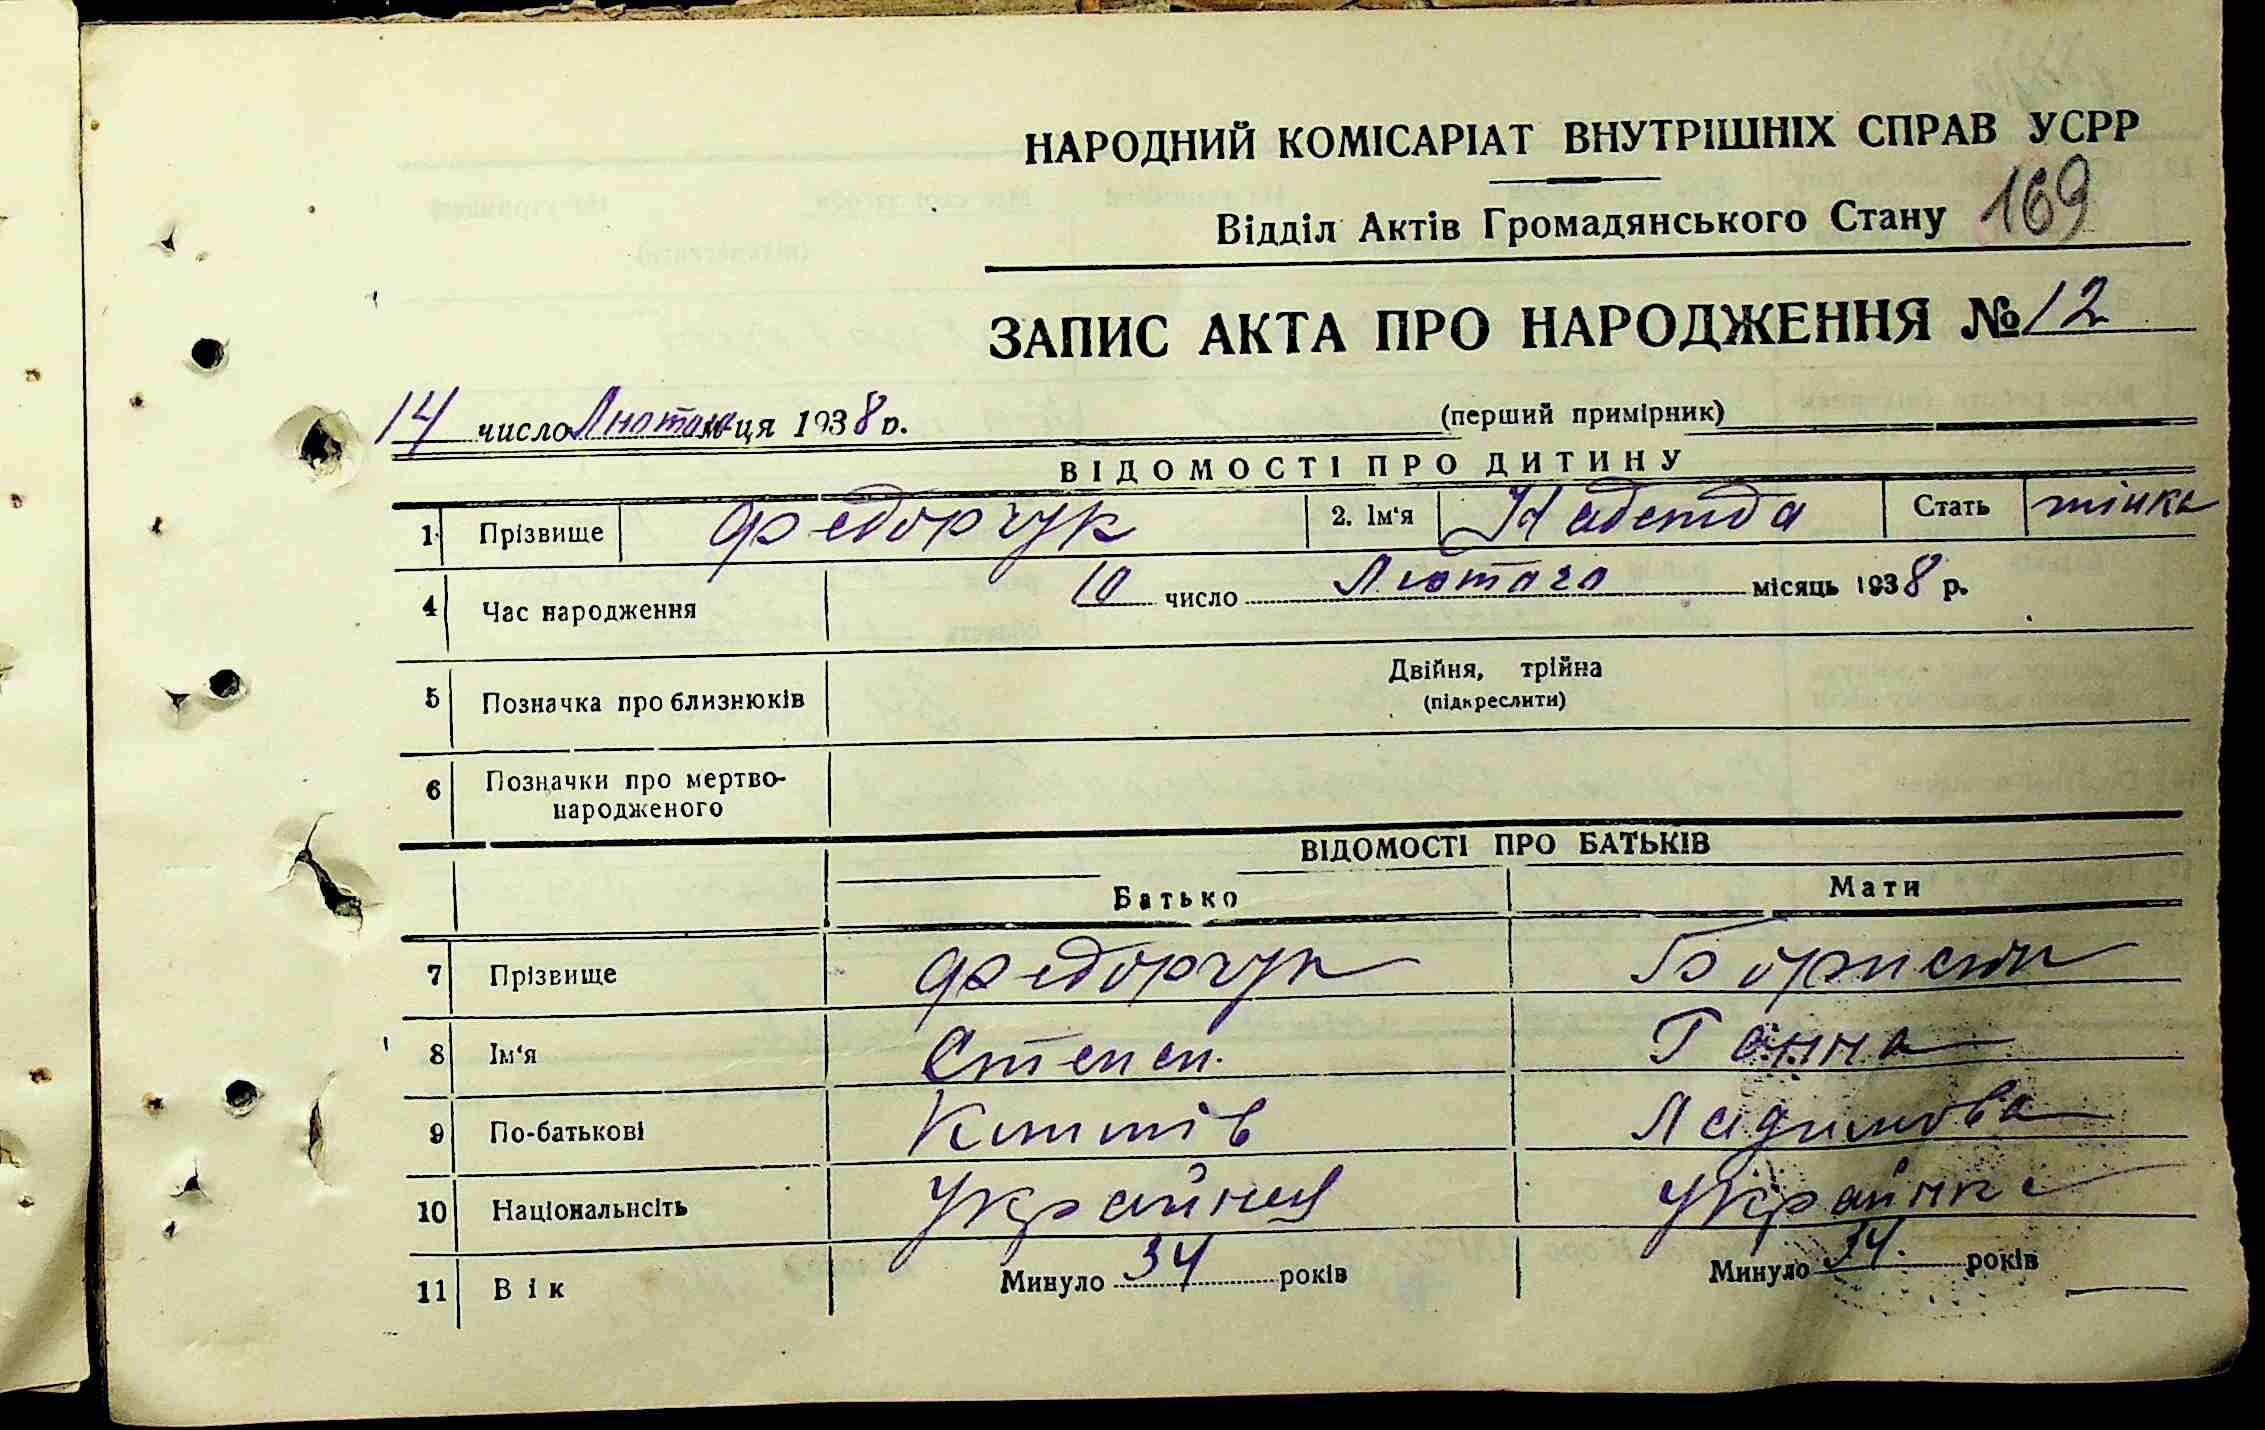 НАРОДНИЙ КОМІСАРІАТ ВНУТРІШНІХ СПРАВ УСРР
Відділ Актів Громадянського Стану 169
ЗАПИС АКТА ПРО НАРОДЖЕННЯ № 12
14 число Лютого м-ця 1938 р. (перший примірник)
ВІДОМОСТІ ПРО ДИТИНУ
1 Прізвище Федорчук 2. Ім'я Стать жінка
4 Час народження 10 число Лютого місяць 1938 р.
5 Позначка про близнюків Двійня, трійна
(підкреслити)
6 Позначки про мертво-
народженого
ВІДОМОСТІ ПРО БАТЬКІВ
Батько Мати
7 Прізвище Федорчук
8 Ім'я Степан Ганна
9 По-батькові
10 Національнсіть Українец Українка
11 Вік Минуло 34 років Минуло 34. років